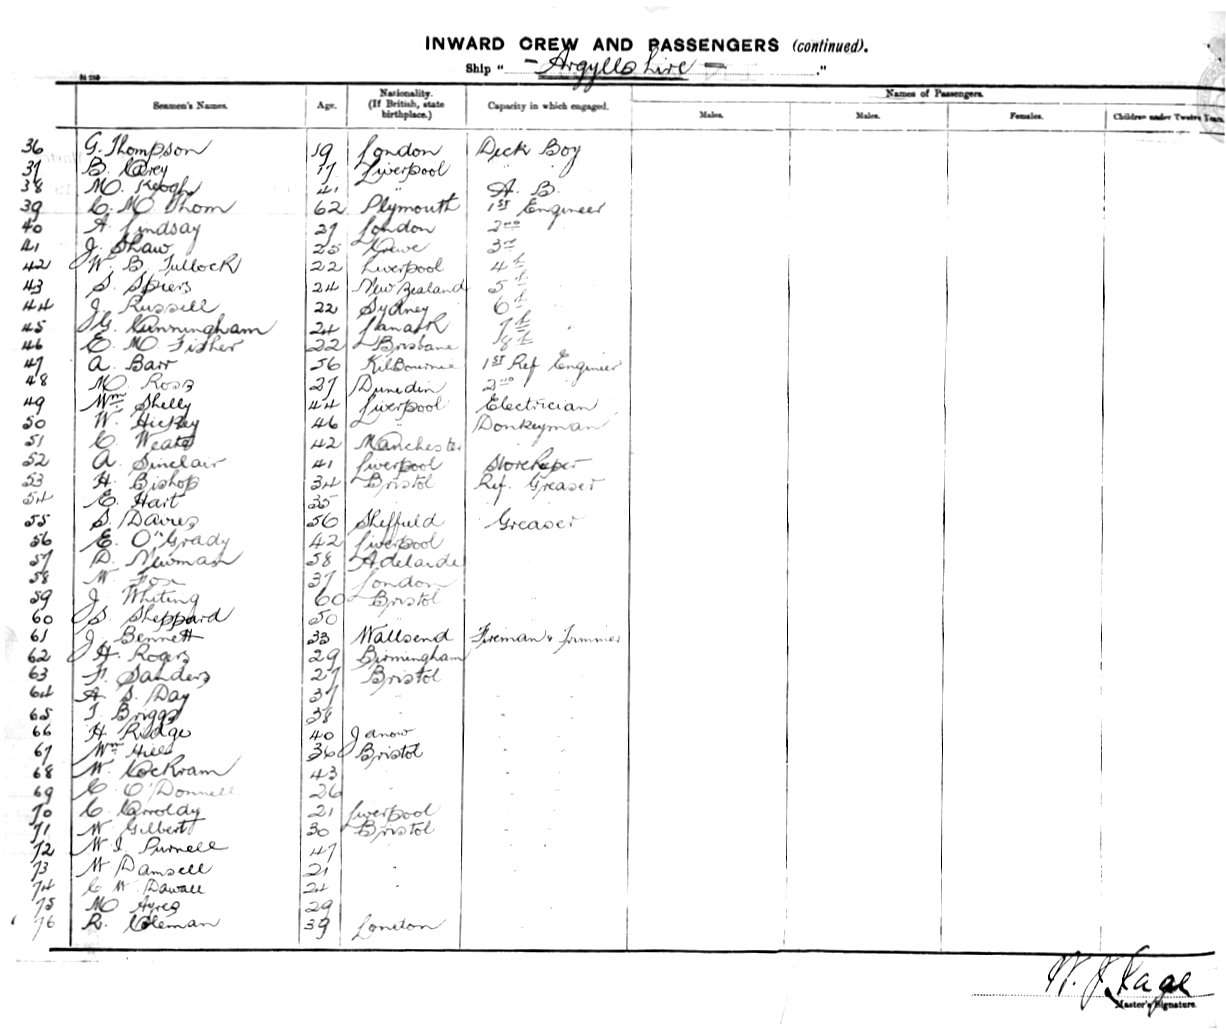 INWARD CREW AND PASSENGERS (continued).
Ship "- Argyllshire -."
Seamen's Names. Age. Nationality. (If British, state birthplace.) Capacity in which engaged. Names of Passengers.
Males. Males. Females. Children under Twelve Years.
36 G. Thompson 19 London Deck Boy
37 B. Carey 17 Liverpool "
38 M. Keogh 41 " A. B.
39 C. M. Thom 62 Plymouth 1st Engineer
40 A. Lindsay 27 London 2nd "
41 J. Shaw 25 Crewe 3rd "
42 W. B. Tullock 22 Liverpool 4th "
43 S. Spiers 24 New Zealand 5th "
44 J. Russell 22 Sydney 6th "
45 G. Cunningham 24 Lanark 7th "
46 E. M. Fisher 22 Brisbane 8th "
47 A. Barr 56 1st Ref Engineer
48 M. Ross 27 Dunedin 2nd "
49 Wm Shelly 44 Liverpool Electrician
50 W. Hickey 46 " Donkeyman
51 C. 42 Manchester "
52 A. Sinclair 41 Liverpool Storekeeper
53 H. Bishop 34 Bristol Ref. Greaser
54 E. Hart 35 "
55 S. Davies 56 Sheffield Greaser
56 E. O'Grady 42 Liverpool
57 D. Newman 58 Adelaide
58 W. Fox 37 London
59 J. Whiting 60 Bristol
60 S. Sheppard 50 "
61 J. Bennett 33 Wallsend Fireman & Trimmer
62 H. Rogers 29 Birmingham "
63 F. Sanders 27 Bristol "
64 A. S. Day 37 " "
65 T. Briggs 38 " "
66 H. Ridge 40 "
67 Wm Hill 36 Bristol "
68 W. Cockram 43 " "
69 C. O'Donnell 26 " "
70 C. 21 Liverpool "
71 W. Gilbert 30 Bristol "
72 W. J. Purnell 47 " "
73 W Damsell 21 " "
74 C. W. 24 " "
75 M Ayres 29 " "
76 R. Coleman 39 London "
W. J. Page
Master's Signature.